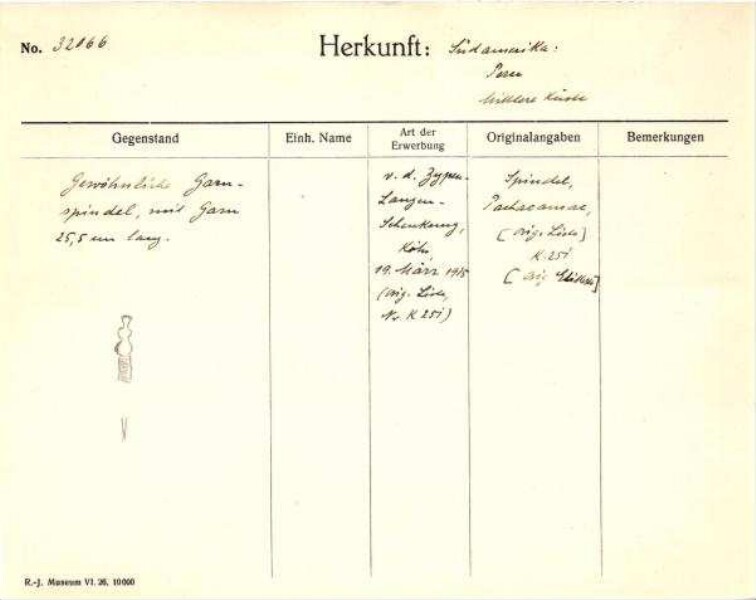 No. 32066
Herkunft: Südamerika:
Peru
Mittlere Küste
Gegenstand
Einh. Name
Art der
Erwerbung
Originalangaben
Bemerkungen
Gewöhnliche Garn-
spindel, mit Garn
25,5 cm lang.
v. d. Zypen-
Langen-
Schenkung,
Köln,
19. März 1915
(orig. Liste,
Nr. K 251)
Spindel,
Pachacamac,
[orig. Liste]
K. 251
[orig. Etikette]
R.-J. Museum VI. 26. 10000